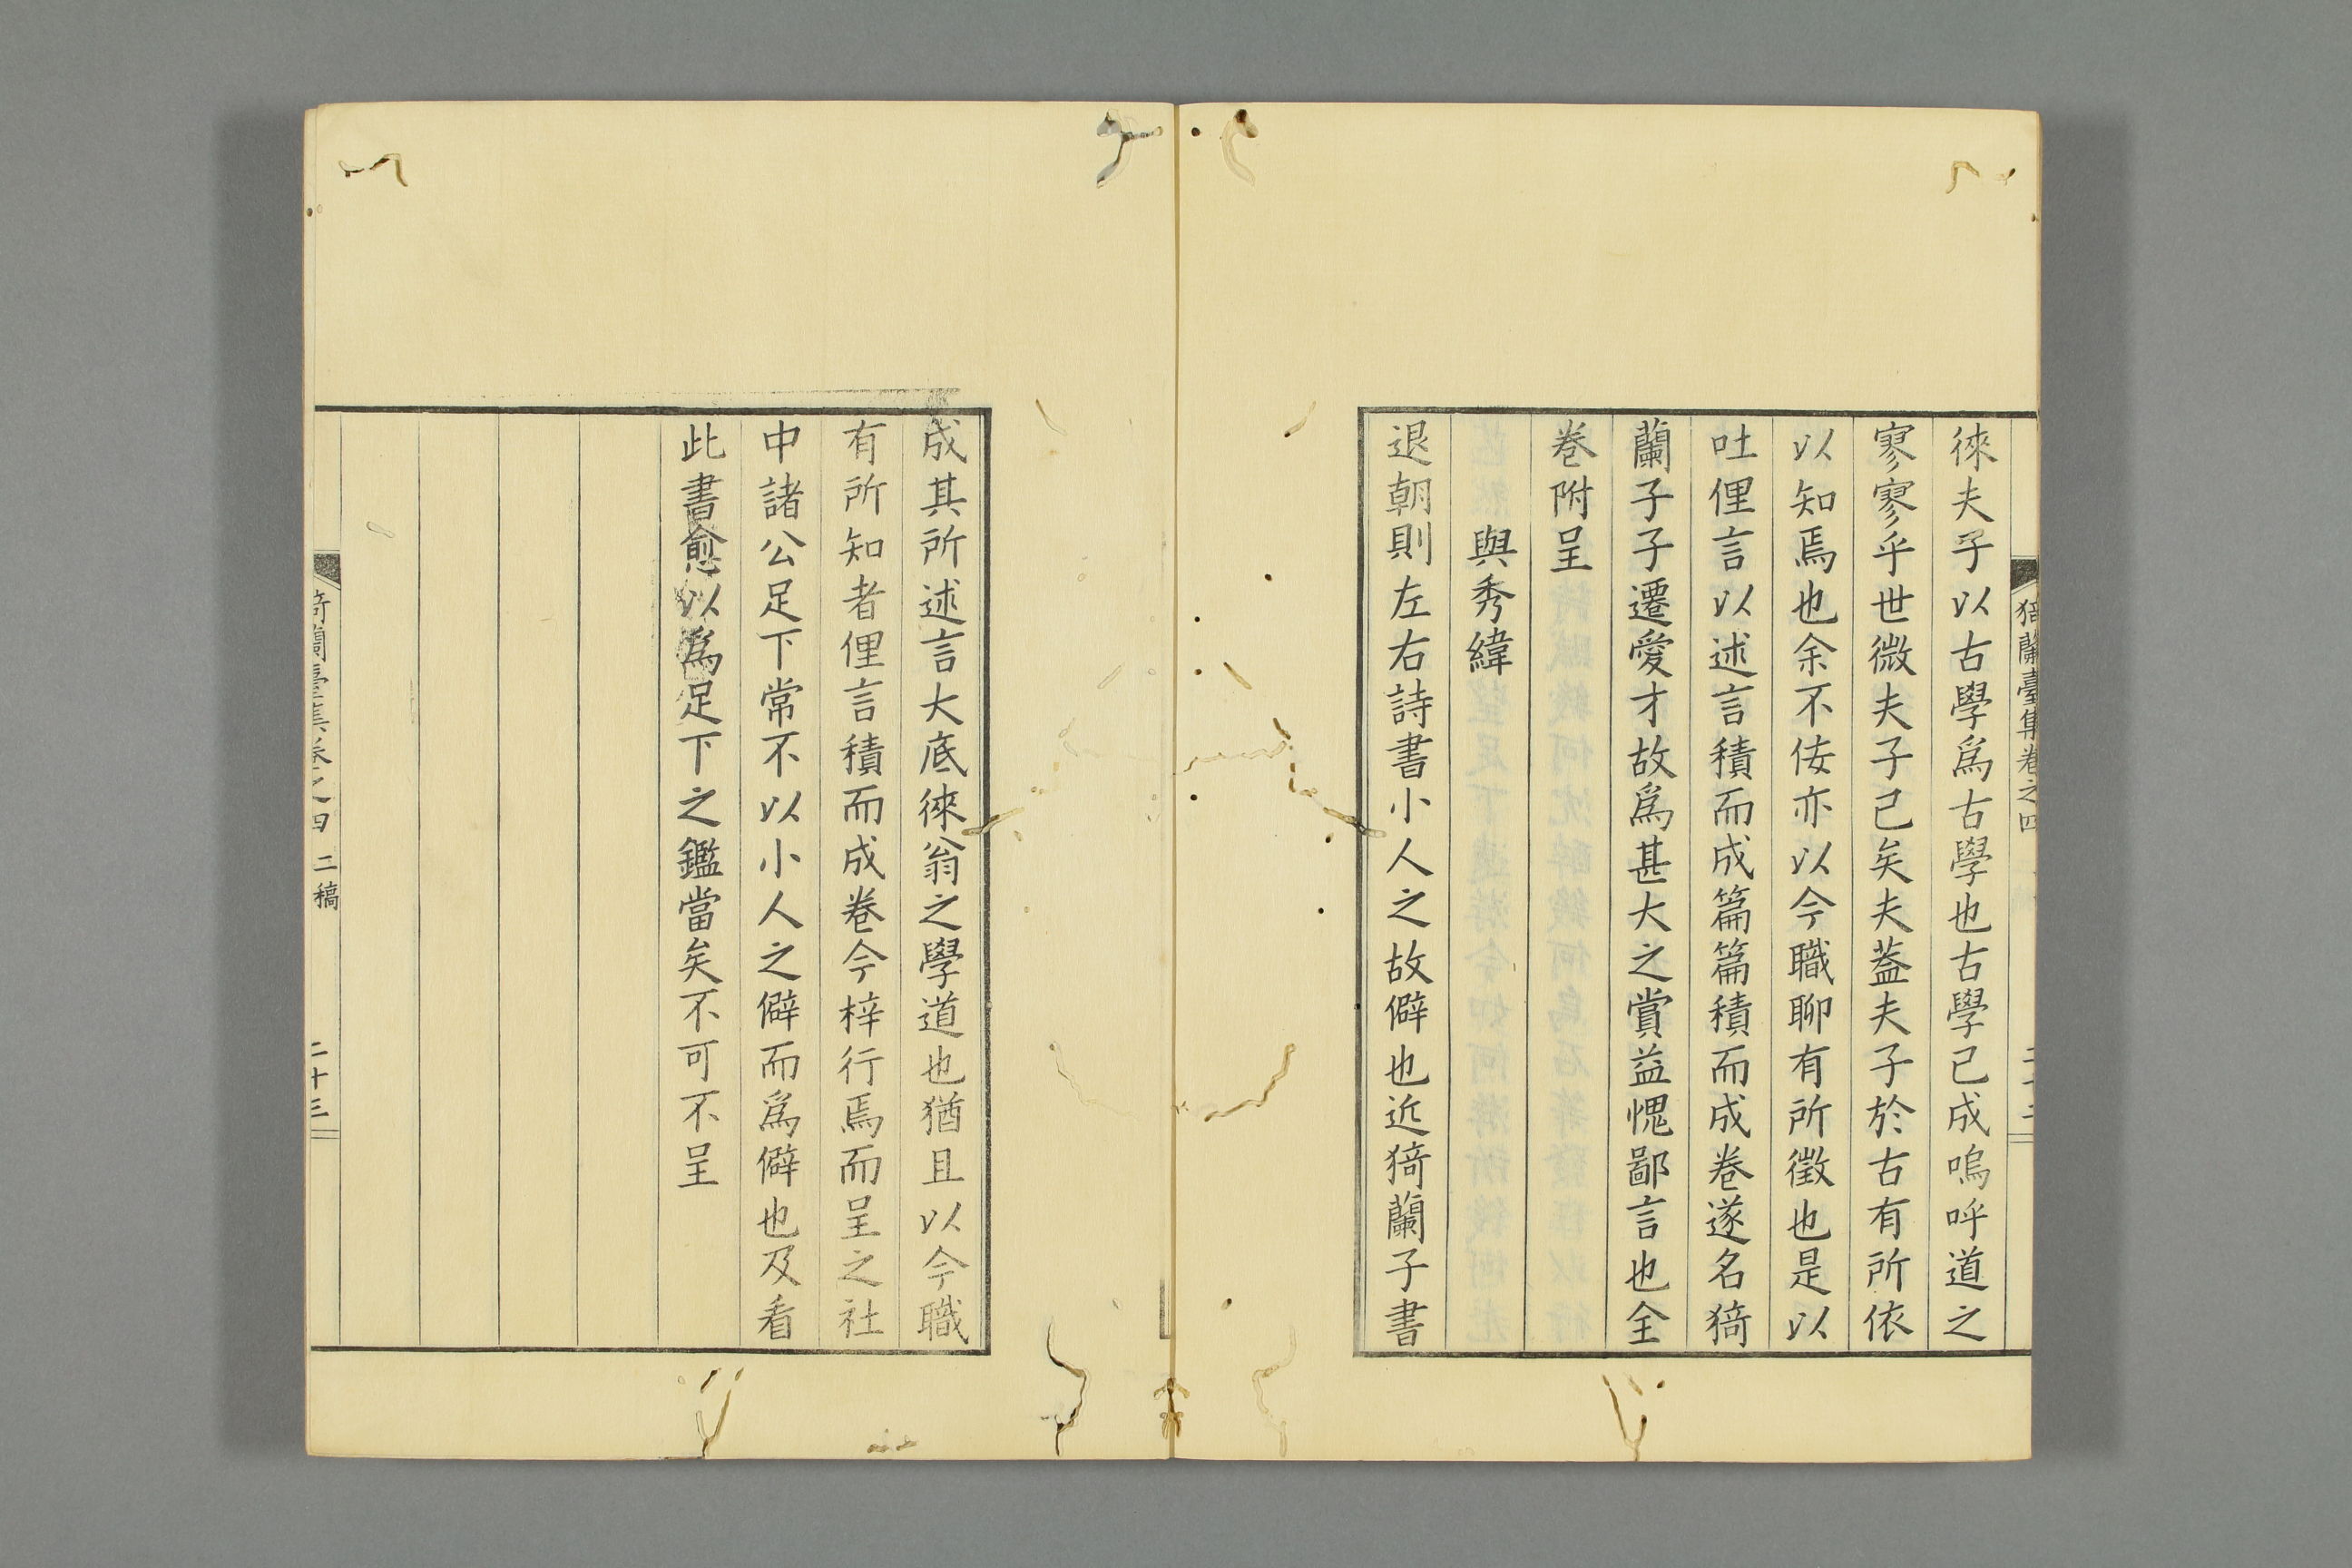 猗蘭臺集卷之四
徠夫子以古學爲古學也古學已成嗚呼道之
寥寥乎世微夫子已矣夫葢夫子於古有所依
以知焉也余不佞亦以今職聊有所徵也是以
吐俚言以述言積而成篇篇積而成卷遂名猗
蘭子子遷愛才故爲甚大之賞益愧鄙言也全
卷附呈
與秀緯
退朝則左右詩書小人之故僻也近猗蘭子書
成其所述言大底徠翁之學道也猶且以今職
有所知者俚言積而成卷今梓行焉而呈之社
中諸公足下常不以小人之僻而爲僻也及看
此書愈以爲足下之鑑當矣不可不呈
猗蘭臺集卷之四 二稿 二十三